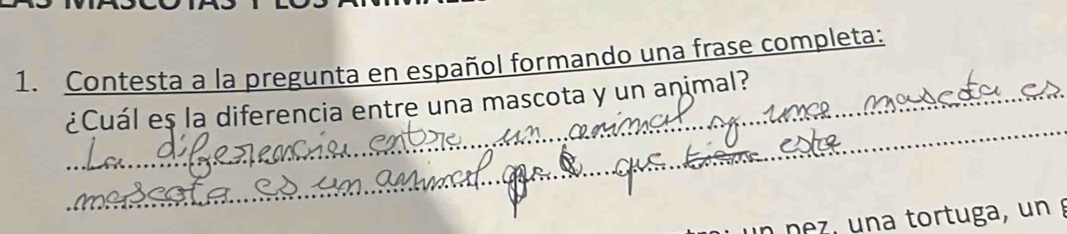 LAS MASCOTAS Y LOS
1. Contesta a la pregunta en español formando una frase completa:
¿Cuál es la diferencia entre una mascota y un animal?
La diferencia entre un animal y una mascota es
mascota es un animal que tiene este
un pez, una tortuga, un